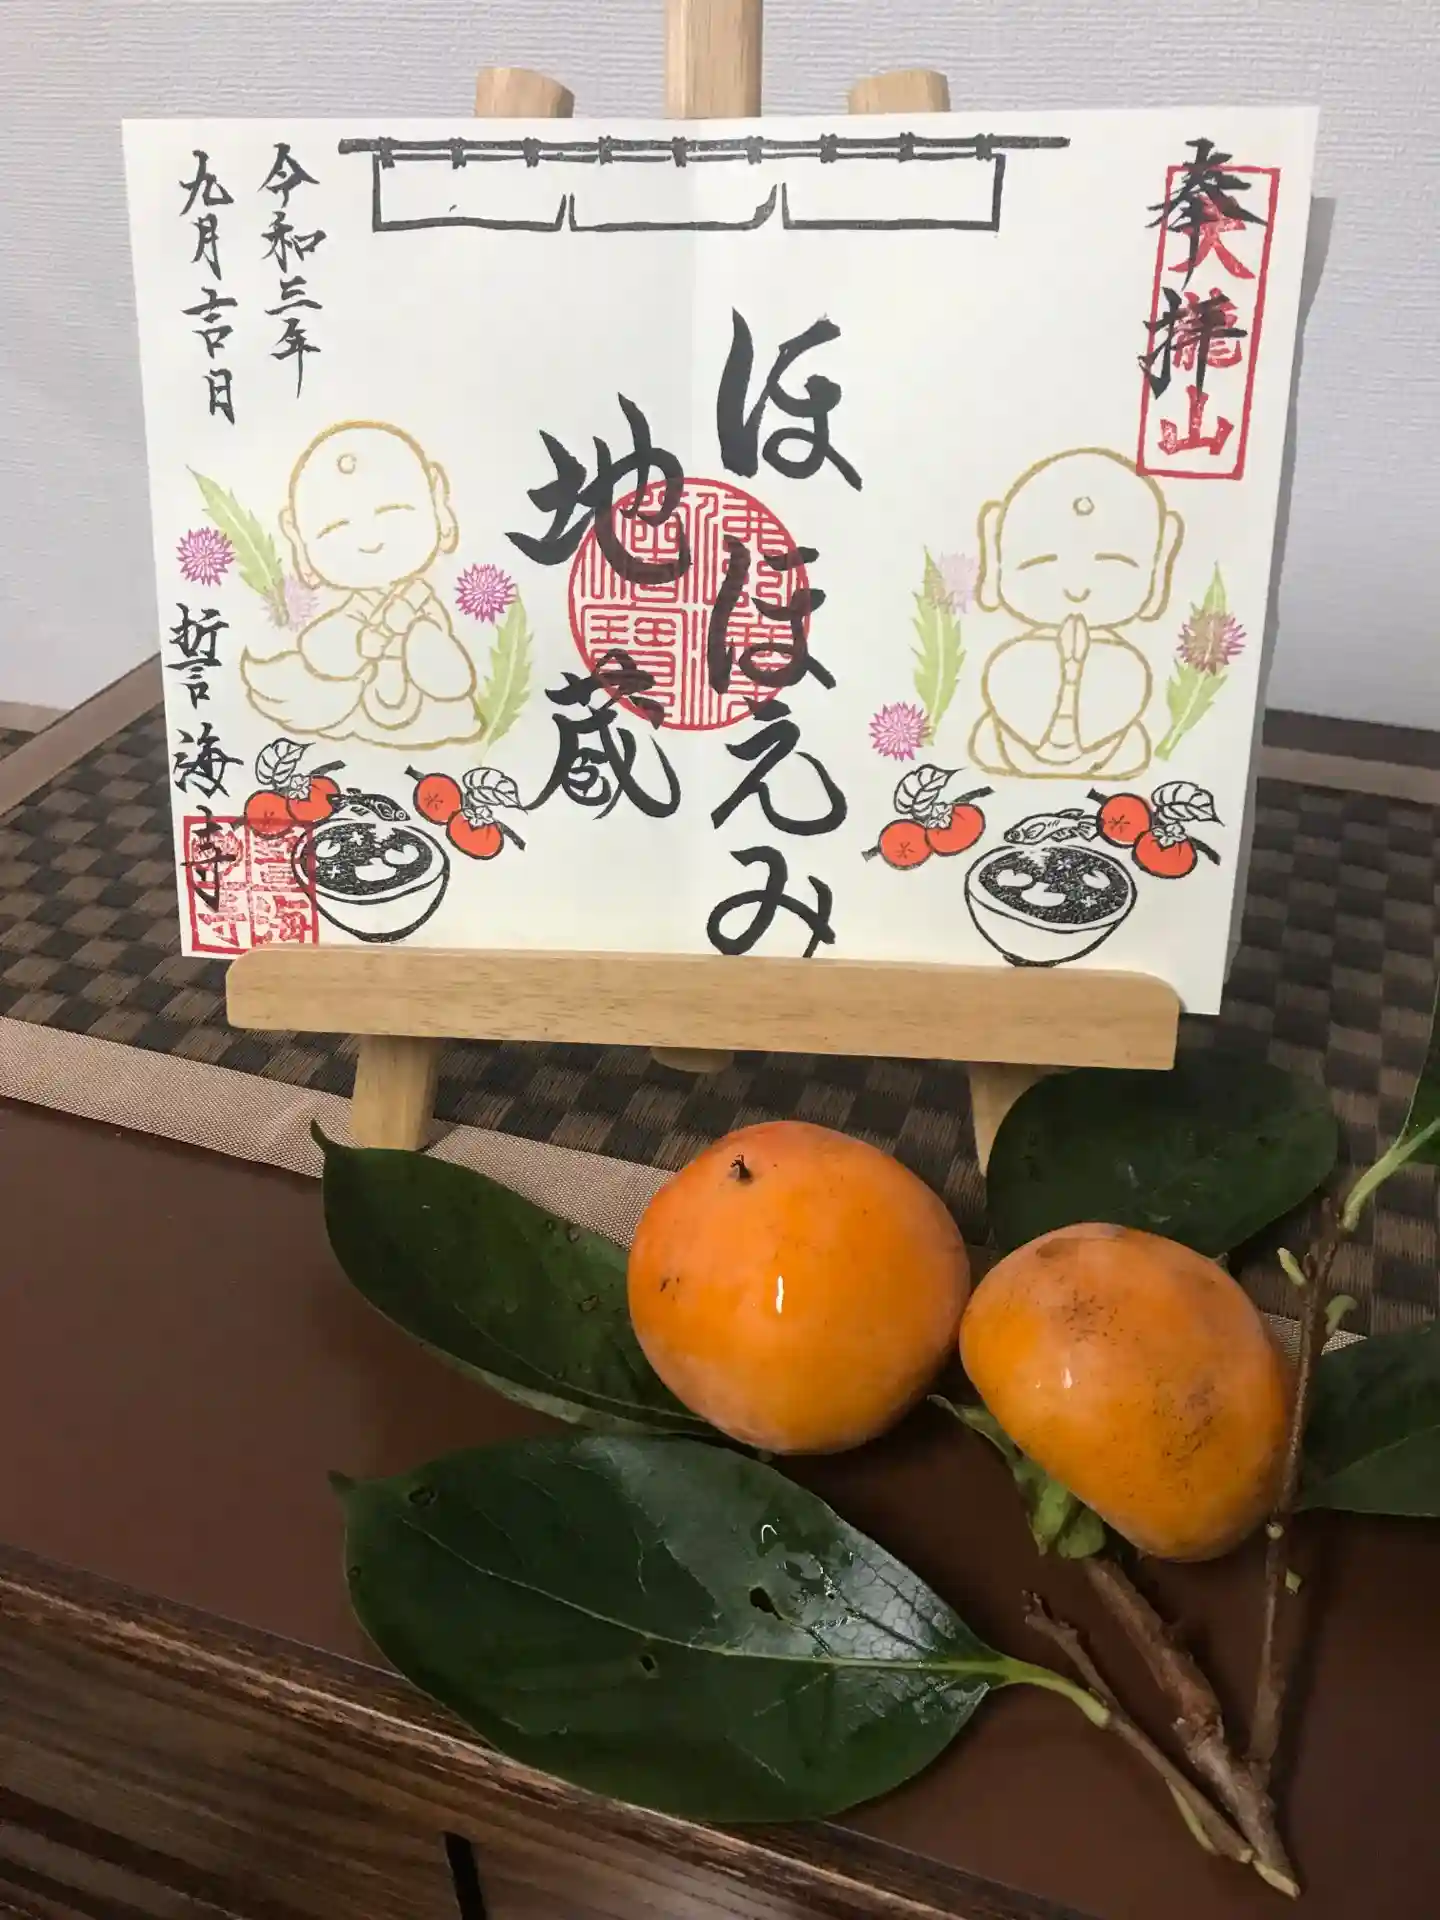 奉拝
大瀧山
ほほえみ
地蔵
令和三年
九月吉日
誓海寺